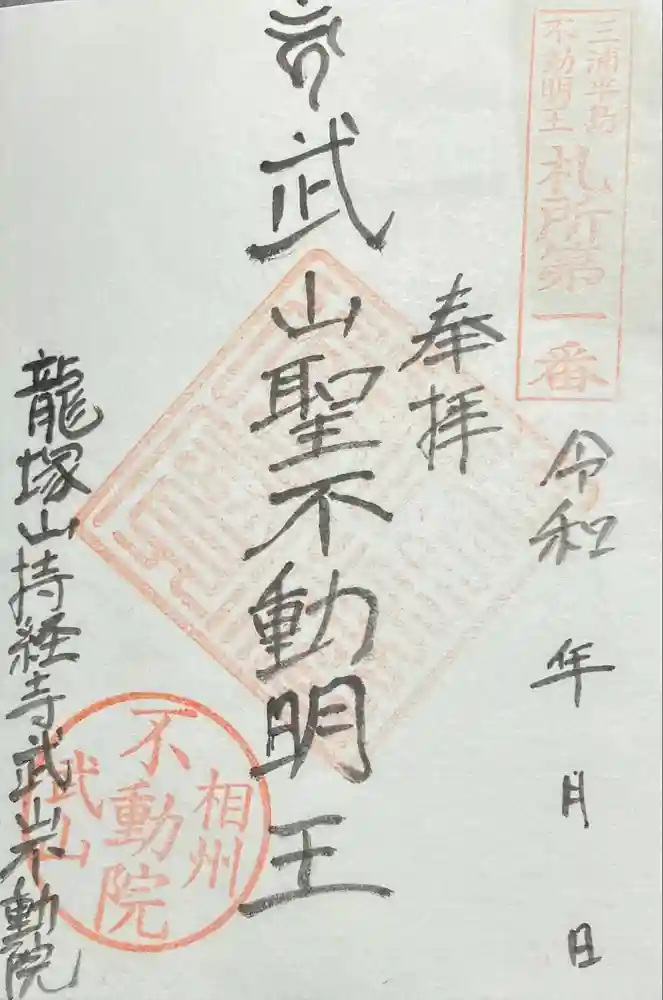 三浦半島
不動明王
札所第一番
令和 年 月 日
奉拝
武山聖不動明王
相州
不動院
武山
龍塚山持経寺武山不動院